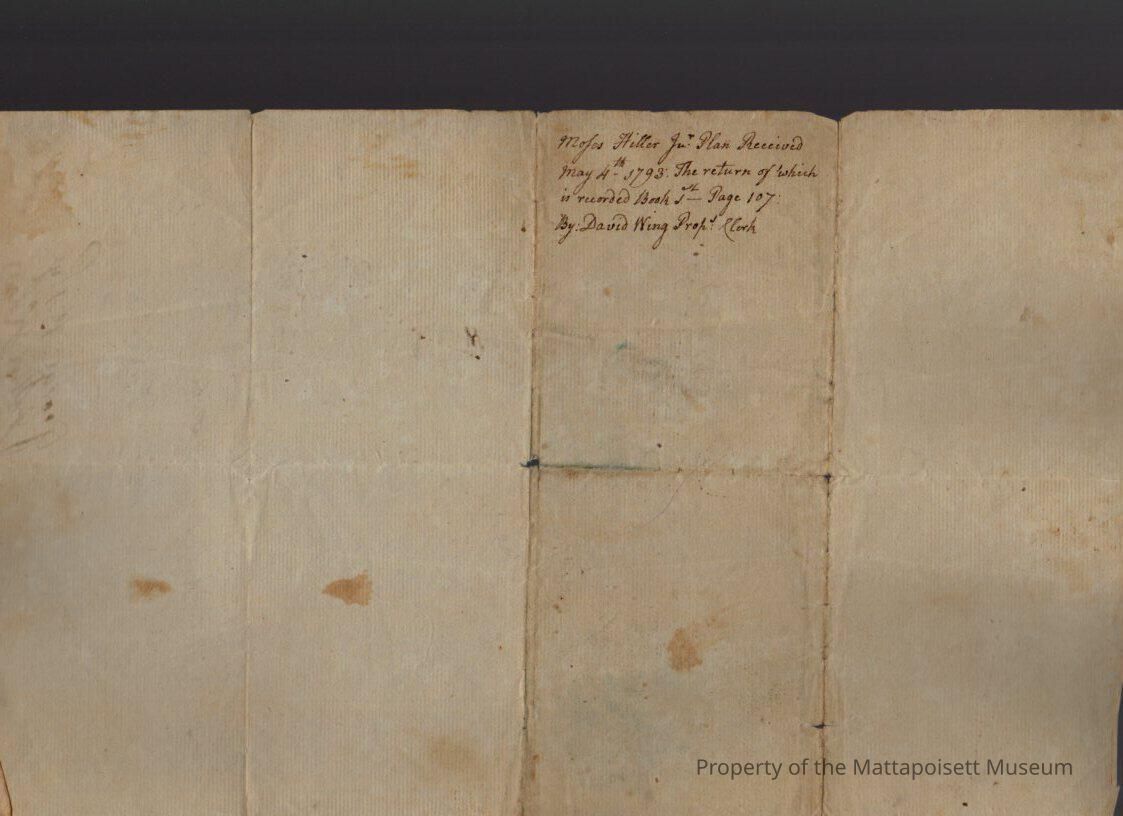 Moses Hiller Junr. Plan Received
May 4th. 1793. The return of which
is recorded Book 1st — Page 107:
By: David Wing Props. Clerk
Property of the Mattapoisett Museum